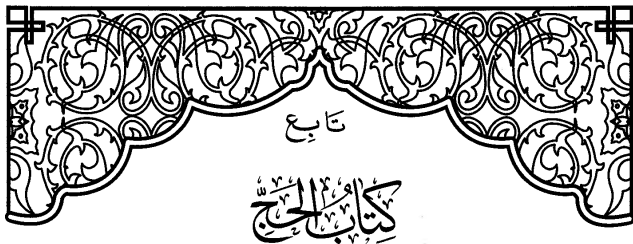 تَابِع
كِتَابُ الحَجِّ